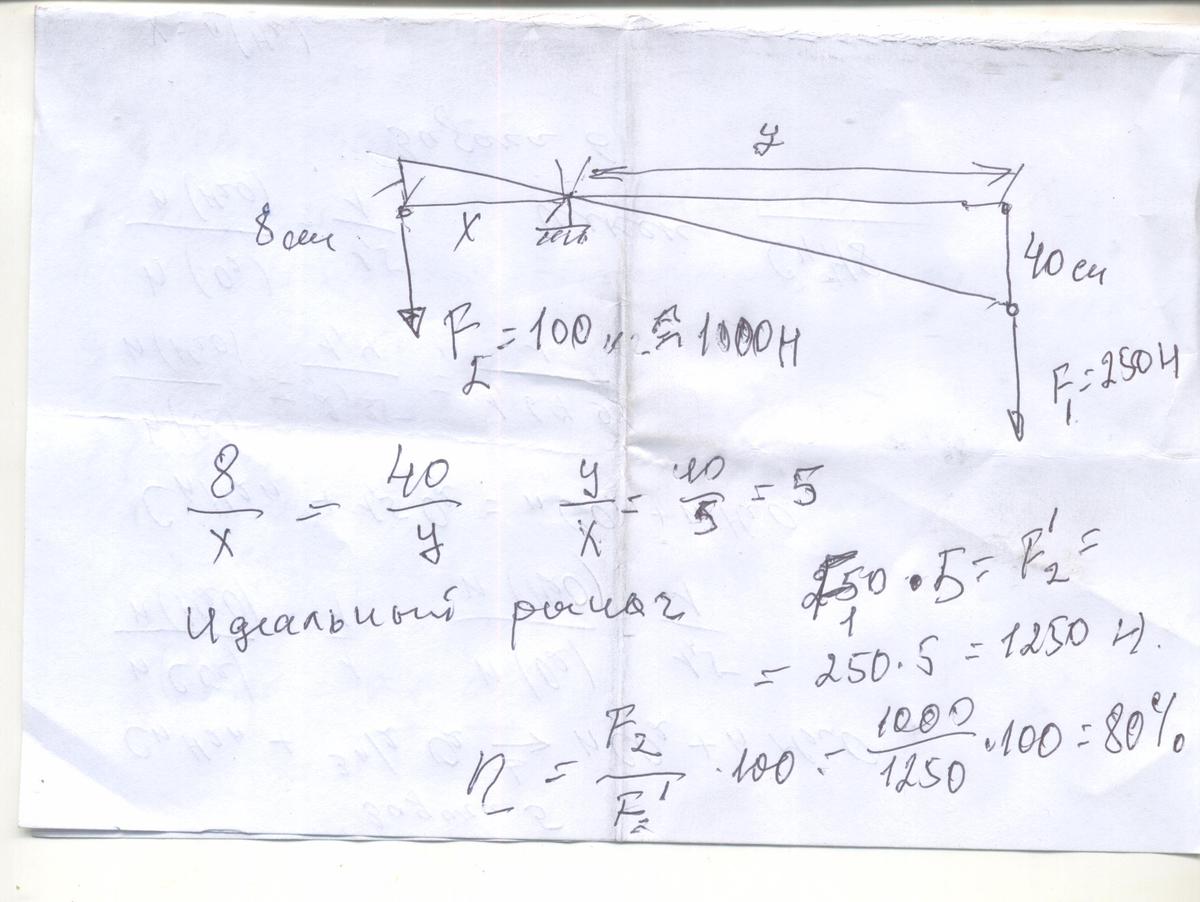 y
8 см
x
40 см
F₂ = 100 = 1000 Н
F₁ = 250 Н
8/x = 40/y y/x = 40/5 = 5
Идеальный рычаг F₁ · 5 = F₂' =
= 250 · 5 = 1250 Н.
η = F₂/F₂' · 100 = 1000/1250 · 100 = 80%